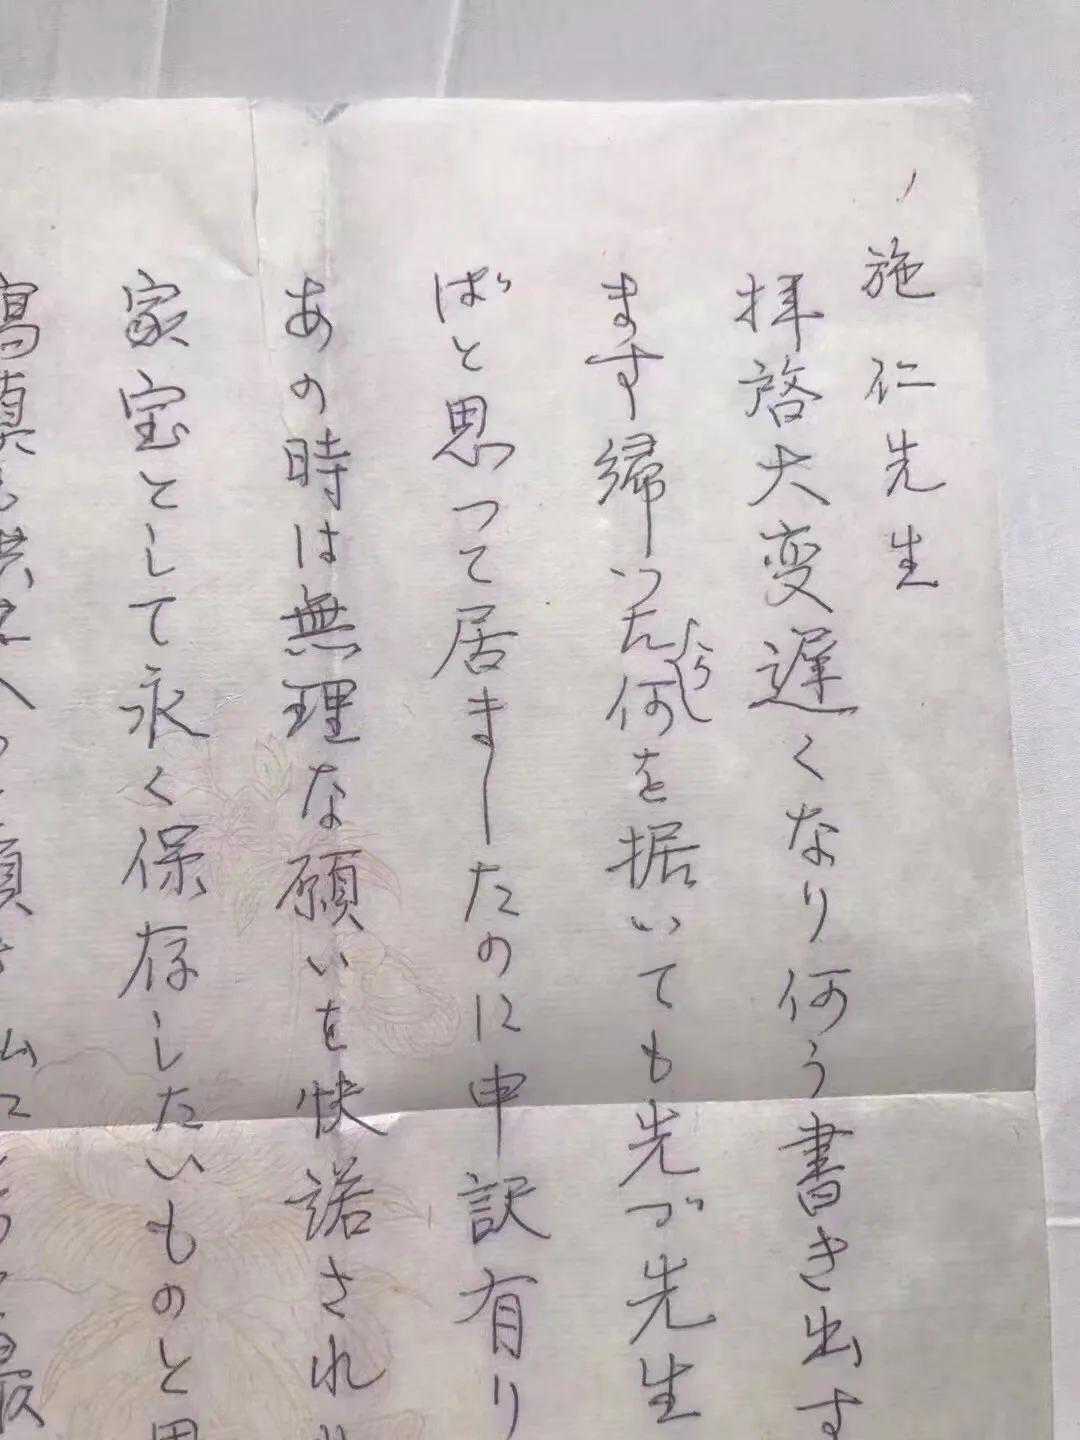 施仁先生
拝啓大変遅くなり何う書き出す
ます帰ったら何を据いても先づ先生
ばと思って居ましたのに申訳有り
あの時は無理な願いを快諾され
家宝として永く保存したいものと思